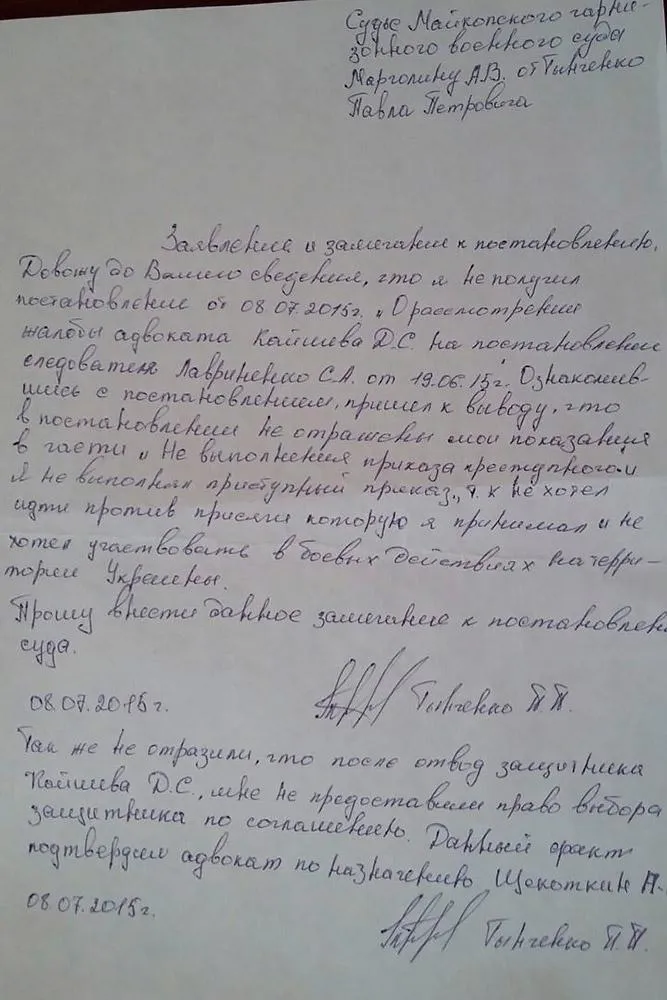 Судье Майкопского гарни-
зонного военного суда
Марголину А.В. от Тынченко
Павла Петровича
Заявление и замечание к постановлению.
Довожу до Вашего сведения, что я не получил
постановление от 08.07.2015г. „О рассмотрении
жалобы адвоката Кайшева Д.С. на постановление
следователя Лавриненко С.А. от 19.06.15г." Ознакомив-
шись с постановлением, пришел к выводу, что
в постановлении не отражены мои показания
в части „Не выполнения приказа преступного"
Я не выполнял приступный приказ, т.к не хотел
идти против присяги которую я принимал и не
хотел участвовать в боевых действиях на терри-
тории Украины.
Прошу внести данное замечание к постановлен
суда.
08.07.2015г. Тынченко П.П.
Так же не отразили, что после отвод защитника
Кайшева Д.С., мне не предоставили право выбора
защитника по соглашению. Данный факт
подтвердил адвокат по назначению Щекоткин А.
08.07.2015г. Тынченко П.П.